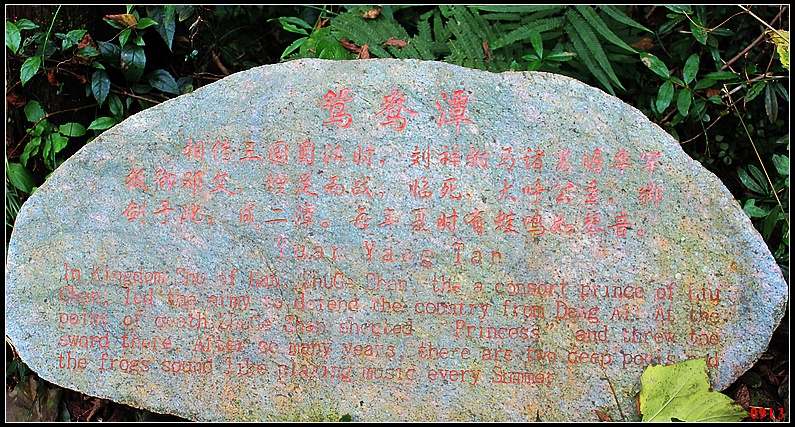 鸳鸯潭
相传三国蜀汉时，刘禅驸马诸葛瞻率军
抵御邓艾，绑足而战。临死，大呼公主，掷
剑于此，成二潭。每年夏时有蛙鸣如琴音。
Yuan Yang Tan
In Kingdom Shu of Han, ZhuGe Chan, the a consort prince of Liu
Chan, led the army to defend the country from Deng Ai. At the
point of death, ZhuGe Chan shrcied Princess and threw the
sword there. After so many years, there are two deep pools and
the frogs sound like playing music every Summer